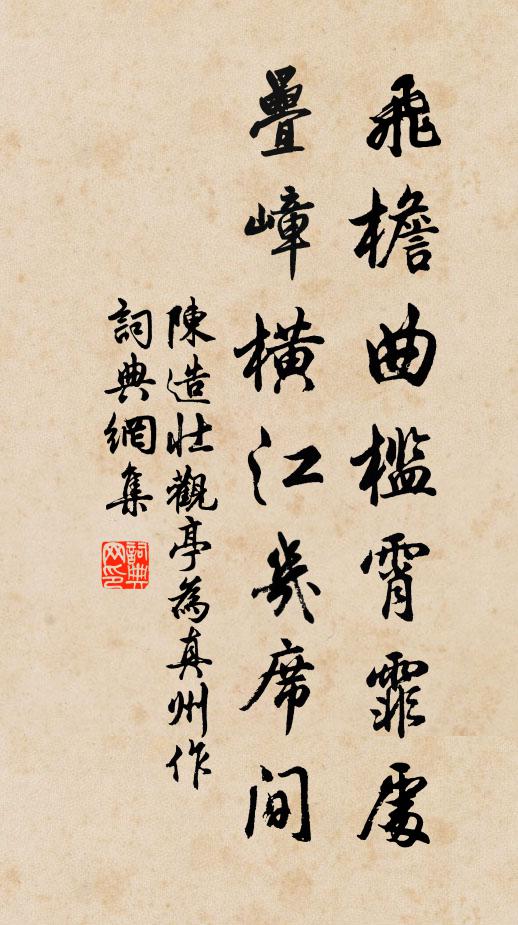 飛檐曲檻霄霏處
疊嶂橫江幾席間
陳造壯觀亭為真州作
詞典網集
詞典
网印